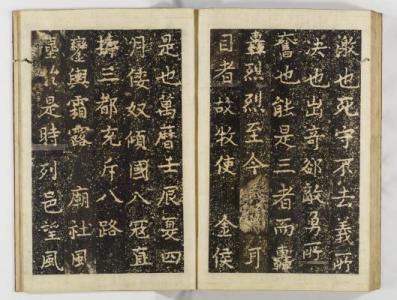 激也死守不去義所
決也出奇却敵勇所
奮也能是三者而轟
轟烈烈至今　耳
目者故牧使　金侯
是也萬曆壬辰夏四
月倭奴傾國入寇直
擣三都充斥八路
鑾輿霜露　廟社風
是時列邑望風